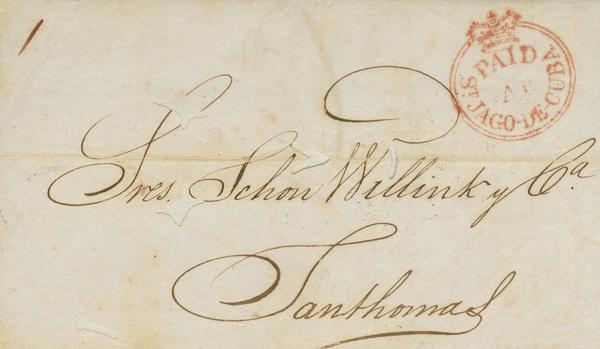 PAID
ST JAGO-DE-CUBA
Sres. Schön Willink y Ca.
Santhomas